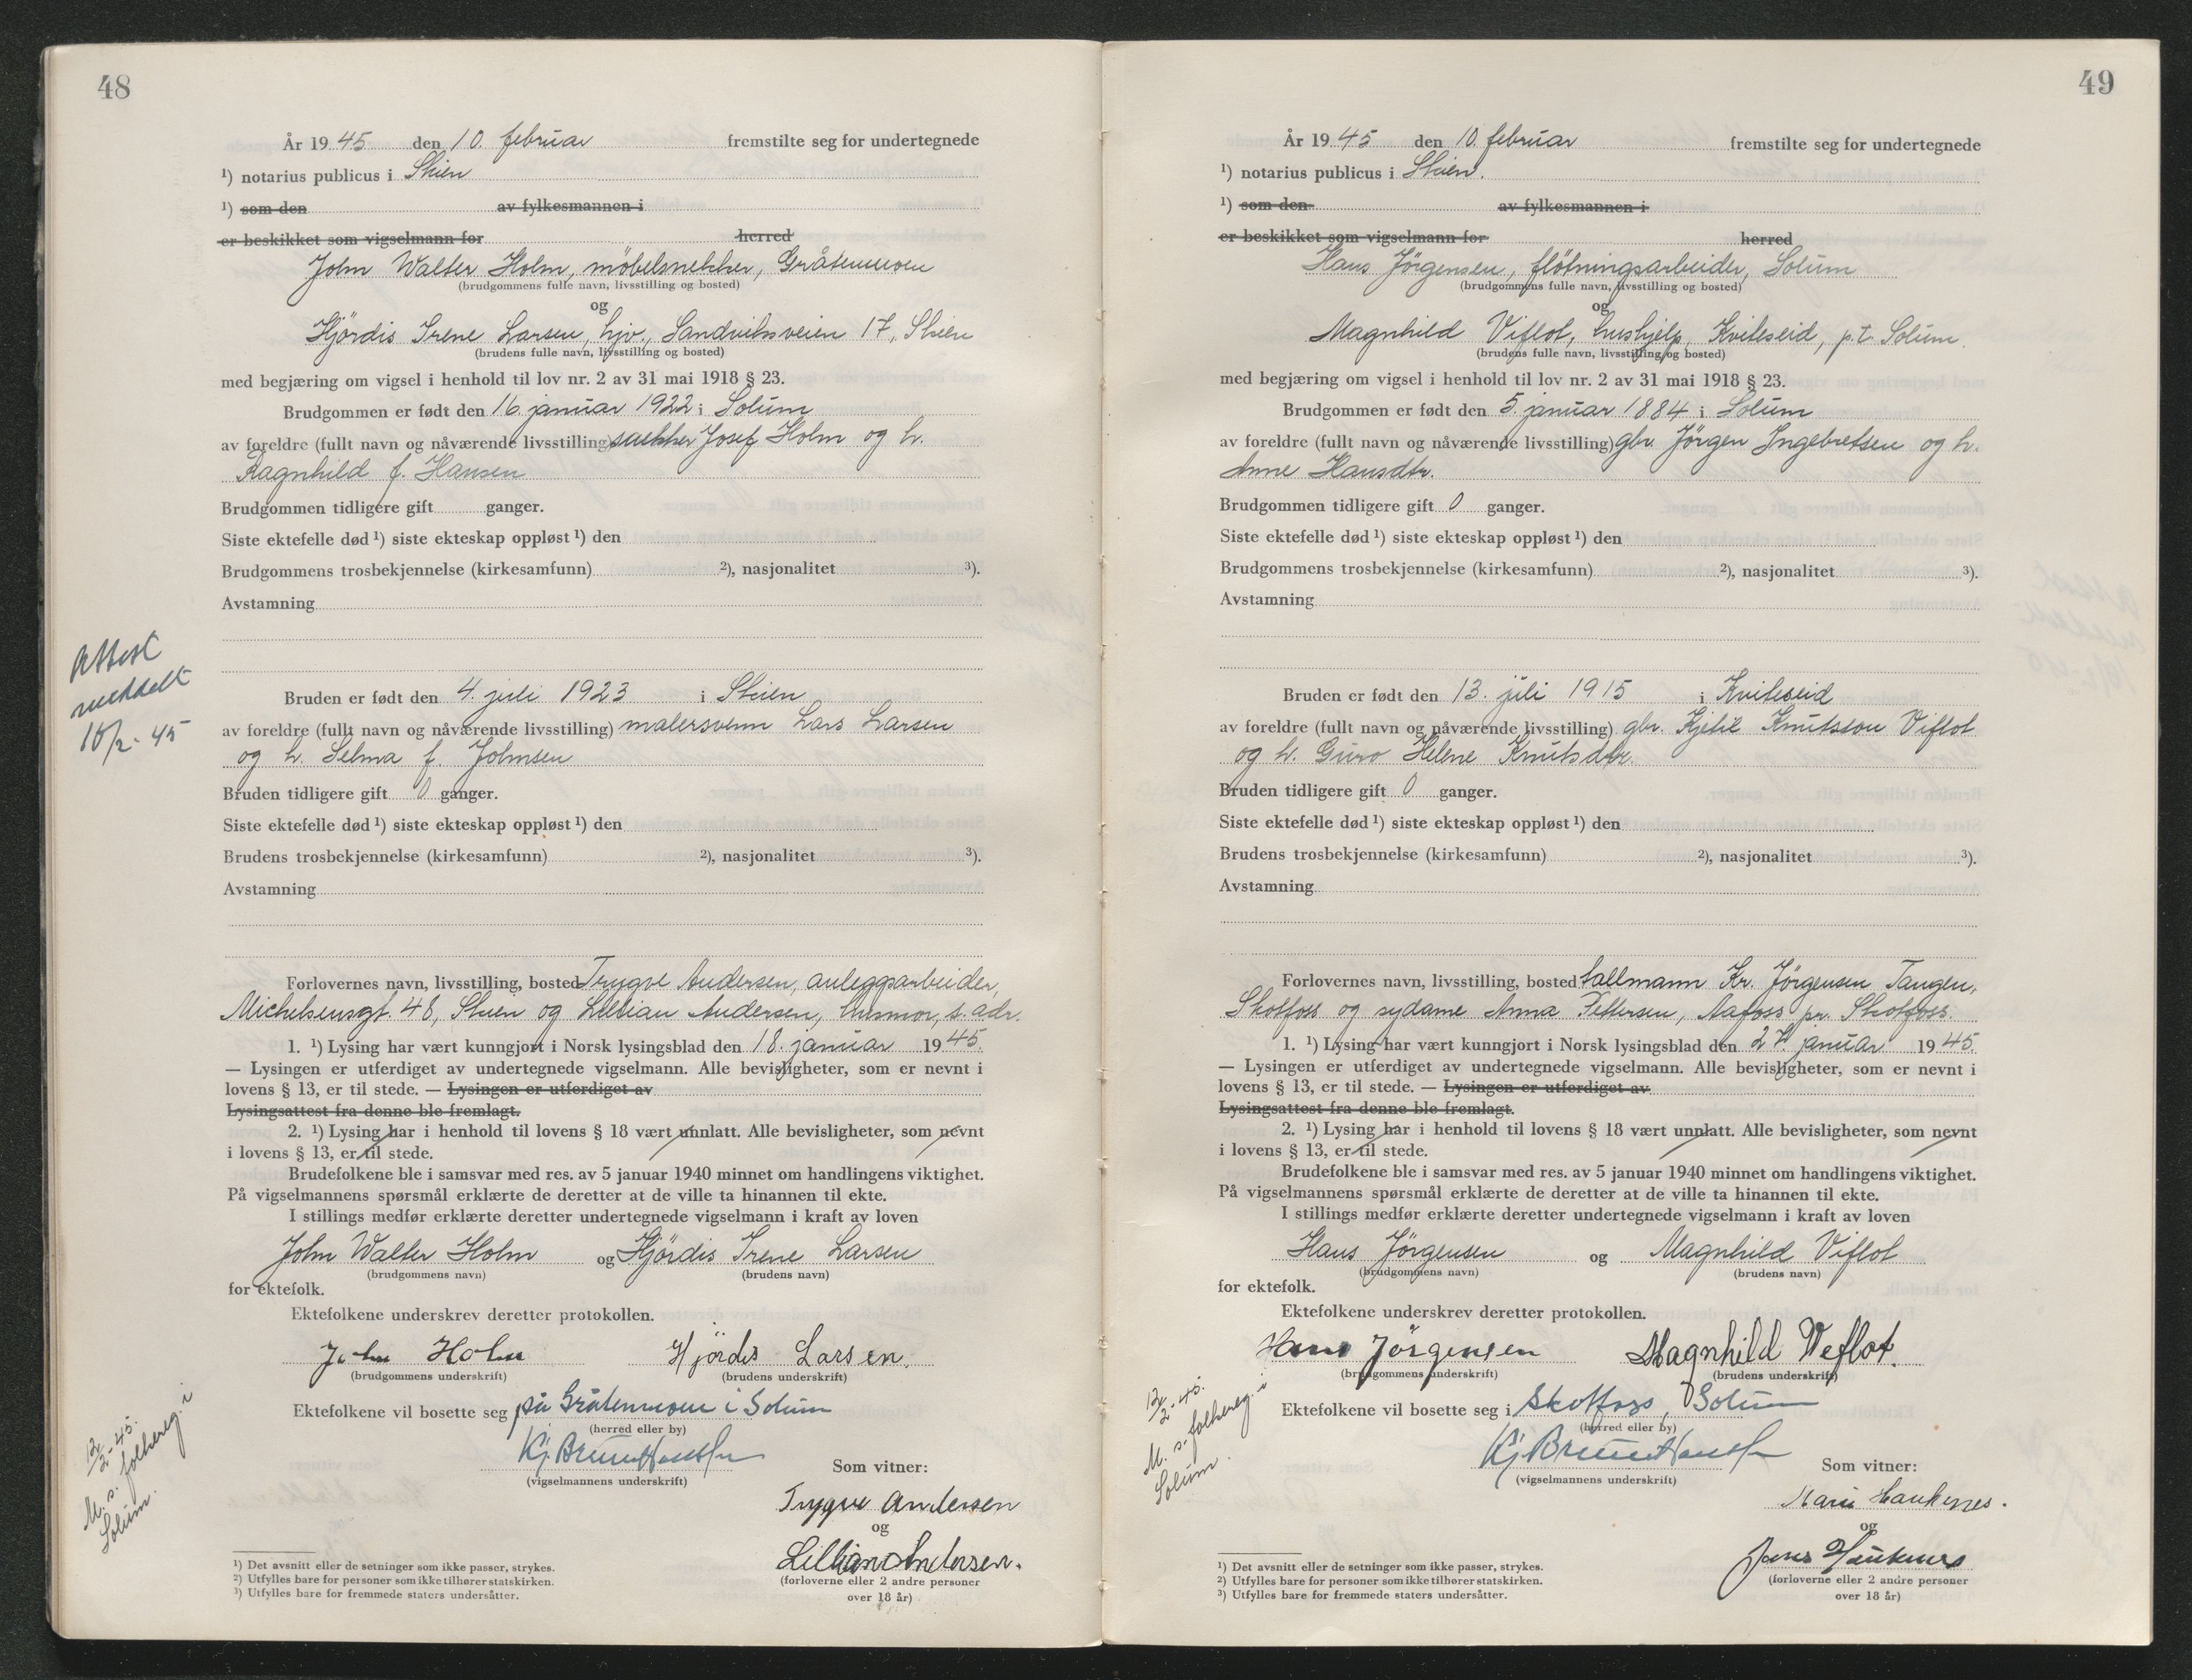 48
År 1945 den 10. februar fremstilte seg for undertegnede
¹) notarius publicus i Skien
¹) som den av fylkesmannen i
er beskikket som vigselmann for herred
John Walter Holm, möbelsnekker, Gråtenmoen
(brudgommens fulle navn, livsstilling og bosted)
og
Hjördis Irene Larsen, hjv., Sandviksveien 17, Skien
(brudens fulle navn, livsstilling og bosted)
med begjæring om vigsel i henhold til lov nr. 2 av 31 mai 1918 § 23.
Brudgommen er født den 16. januar 1922 i Solum
av foreldre (fullt navn og nåværende livsstilling) snekker Josef Holm og h.
Ragnhild f. Hansen
Brudgommen tidligere gift ganger.
Siste ektefelle død ¹) siste ekteskap oppløst ¹) den
Brudgommens trosbekjennelse (kirkesamfunn) ²), nasjonalitet ³).
Avstamning
Attest
meddelt
10/2-45
Bruden er født den 4. juli 1923 i Skien
av foreldre (fullt navn og nåværende livsstilling) malersvenn Lars Larsen
og h. Selma f. Johnsen
Bruden tidligere gift 0 ganger.
Siste ektefelle død ¹) siste ekteskap oppløst ¹) den
Brudens trosbekjennelse (kirkesamfunn) ²), nasjonalitet ³).
Avstamning
Forlovernes navn, livsstilling, bosted Trygve Andersen, anleggsarbeider,
Michelsensgt. 48, Skien og Lillian Andersen, husmor, s. adr.
1. ¹) Lysing har vært kunngjort i Norsk lysingsblad den 18. januar 1945.
— Lysingen er utferdiget av undertegnede vigselmann. Alle bevisligheter, som er nevnt i
lovens § 13, er til stede. — Lysingen er utferdiget av
Lysingsattest fra denne ble fremlagt.
2. ¹) Lysing har i henhold til lovens § 18 vært unnlatt. Alle bevisligheter, som nevnt
i lovens § 13, er til stede.
Brudefolkene ble i samsvar med res. av 5 januar 1940 minnet om handlingens viktighet.
På vigselmannens spørsmål erklærte de deretter at de ville ta hinannen til ekte.
I stillings medfør erklærte deretter undertegnede vigselmann i kraft av loven
John Walter Holm og Hjördis Irene Larsen
(brudgommens navn) (brudens navn)
for ektefolk.
Ektefolkene underskrev deretter protokollen.
John Holm Hjördis Larsen.
(brudgommens underskrift) (brudens underskrift)
Ektefolkene vil bosette seg på Gråtenmoen i Solum
(herred eller by)
(vigselmannens underskrift)
Som vitner:
12/2-45.
M. s. folkereg. i
Solum.
Trygve Andersen
og
Lillian Andersen.
(forloverne eller 2 andre personer
over 18 år)
¹) Det avsnitt eller de setninger som ikke passer, strykes.
²) Utfylles bare for personer som ikke tilhører statskirken.
³) Utfylles bare for fremmede staters undersåtter.
49
År 1945 den 10. februar fremstilte seg for undertegnede
¹) notarius publicus i Skien.
¹) som den av fylkesmannen i
er beskikket som vigselmann for herred
Hans Jörgensen, flötningsarbeider, Solum
(brudgommens fulle navn, livsstilling og bosted)
og
Magnhild Viflot, hushjelp, Kviteseid, p.t. Solum.
(brudens fulle navn, livsstilling og bosted)
med begjæring om vigsel i henhold til lov nr. 2 av 31 mai 1918 § 23.
Brudgommen er født den 5. januar 1884 i Solum
av foreldre (fullt navn og nåværende livsstilling) gbr. Jörgen Ingebretsen og h.
Anne Hansdtr.
Brudgommen tidligere gift 0 ganger.
Siste ektefelle død ¹) siste ekteskap oppløst ¹) den
Brudgommens trosbekjennelse (kirkesamfunn) ²), nasjonalitet ³).
Avstamning
Bruden er født den 13. juli 1915 i Kviteseid
av foreldre (fullt navn og nåværende livsstilling) gbr. Kjetil Knutsson Viflot
og h. Guro Helene Knutsdtr.
Bruden tidligere gift 0 ganger.
Siste ektefelle død ¹) siste ekteskap oppløst ¹) den
Brudens trosbekjennelse (kirkesamfunn) ²), nasjonalitet ³).
Avstamning
Forlovernes navn, livsstilling, bosted Kr. Jörgensen Tangen,
Skotfoss og sydame Anna Pettersen, Aafoss pr. Skotfoss.
1. ¹) Lysing har vært kunngjort i Norsk lysingsblad den 27. januar 1945.
— Lysingen er utferdiget av undertegnede vigselmann. Alle bevisligheter, som er nevnt i
lovens § 13, er til stede. — Lysingen er utferdiget av
Lysingsattest fra denne ble fremlagt.
2. ¹) Lysing har i henhold til lovens § 18 vært unnlatt. Alle bevisligheter, som nevnt
i lovens § 13, er til stede.
Brudefolkene ble i samsvar med res. av 5 januar 1940 minnet om handlingens viktighet.
På vigselmannens spørsmål erklærte de deretter at de ville ta hinannen til ekte.
I stillings medfør erklærte deretter undertegnede vigselmann i kraft av loven
Hans Jörgensen og Magnhild Viflot
(brudgommens navn) (brudens navn)
for ektefolk.
Ektefolkene underskrev deretter protokollen.
Hans Jörgensen Magnhild Veflot.
(brudgommens underskrift) (brudens underskrift)
Ektefolkene vil bosette seg i Skotfoss, Solum
(herred eller by)
(vigselmannens underskrift)
Som vitner:
12/2-45.
M. s. folkereg. i
Solum.
Marie Haukenes.
og
Jens Haukenes
(forloverne eller 2 andre personer
over 18 år)
¹) Det avsnitt eller de setninger som ikke passer, strykes.
²) Utfylles bare for personer som ikke tilhører statskirken.
³) Utfylles bare for fremmede staters undersåtter.